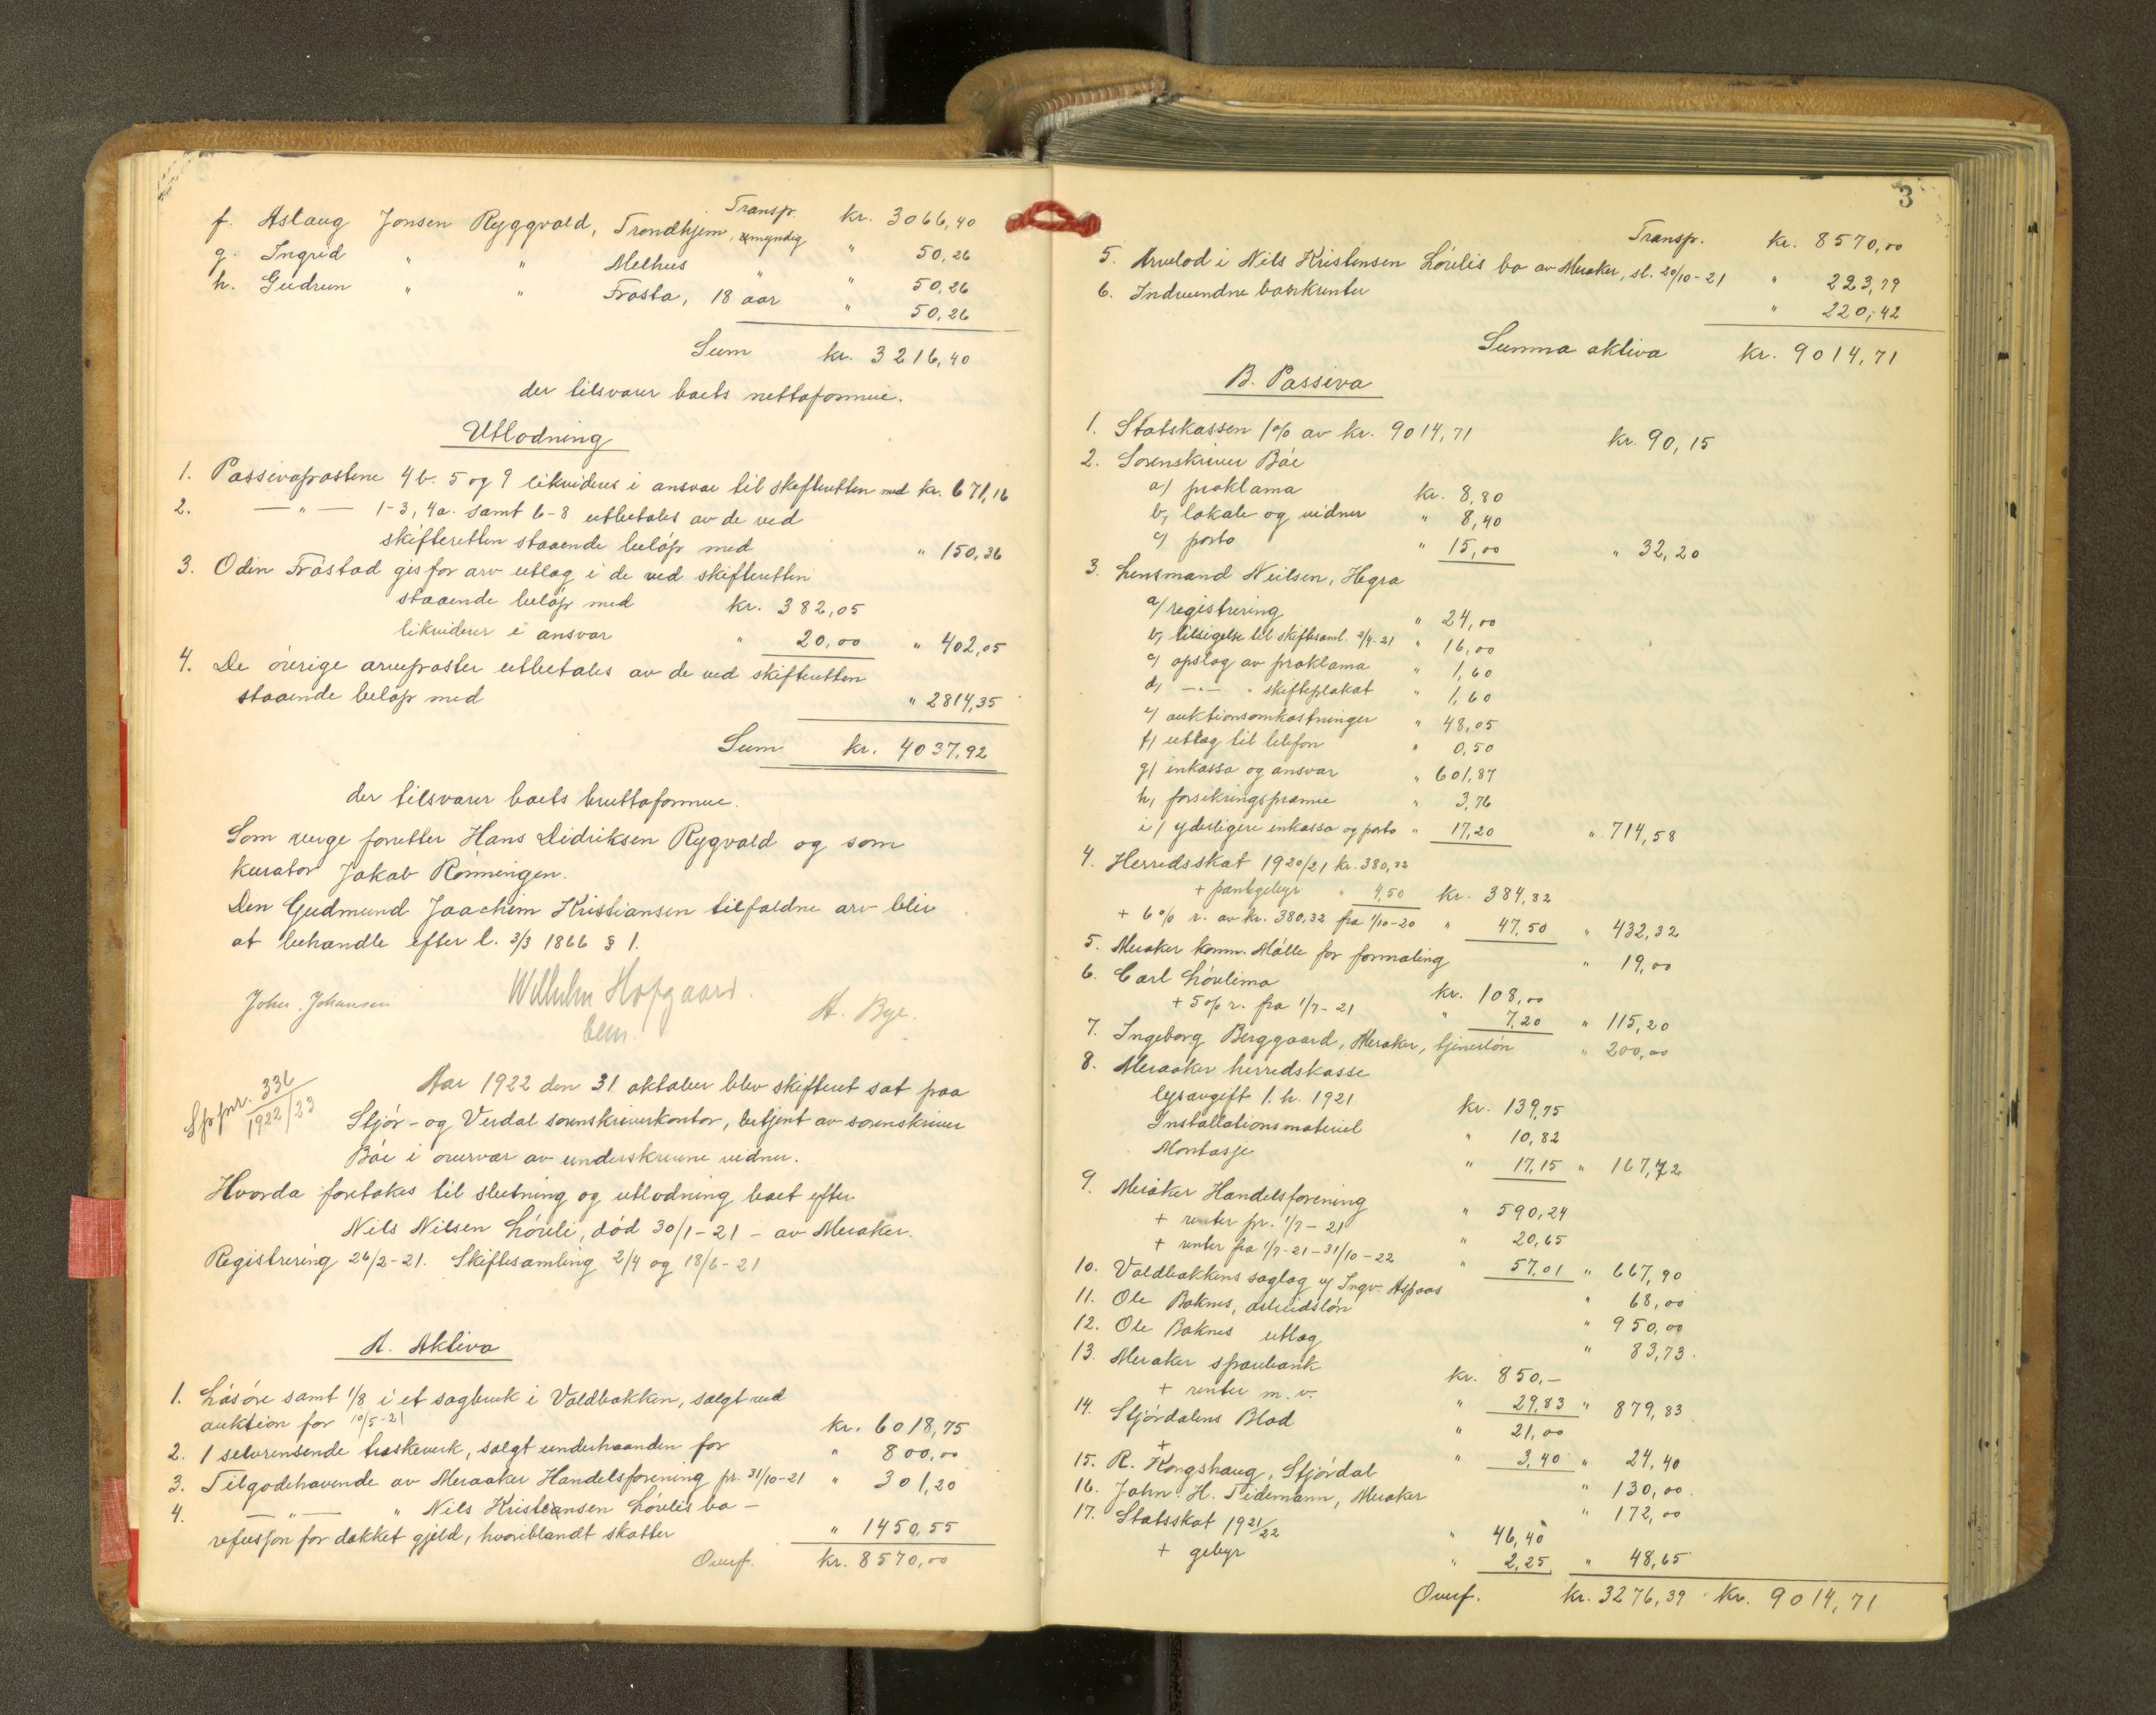 Transp. kr. 3066,40
f. Aslaug Jonsen Ryggvold, Trondhjem, umyndig " 50,26
g. Ingrid " " Melhus " " 50,26
h. Gudrun " " Frosta, 18 aar " 50,26
Sum kr. 3216,40
der tilsvarer boets nettoformue.
Utlodning
1. Passivapostene 4 b. 5 og 9 likvideres i ansvar til skifteretten med kr. 671,16
2. — " — 1-3, 4a. samt 6-8 utbetales av de ved
skifteretten staaende beløp med " 150,36
3. Odin Fråstad gis for arv utlæg i de ved skifteretten
staaende beløp med kr. 382,05
likviderer i ansvar " 20,00 " 402,05
4. De øvrige arveposter utbetales av de ved skifteretten
staaende beløp med " 2814,35
Sum kr. 4037,92
der tilsvarer boets bruttoformue.
Som verge foretter Hans Didriksen Rygvold og som
kurator Jakob Rönningen.
Den Gudmund Joachim Kristiansen tilfaldne arv blir
at behandle efter l. 3/3 1866 § 1.
Johs. Johansen Wilhelm Hofgaard. A. Bye.
bem.
Sppnr. 336
1922/23
Aar 1922 den 31 oktober blev skifteret sat paa
Stjør- og Verdal sorenskriverkontor, betjent av sorenskriver
Bóe i overvær av underskrevne vidner.
Hvorda foretokes til slutning og utlodning boet efter
Nils Nilsen Lóvli, død 30/1-21 - av Meraker.
Registrering 26/2-21. Skiftesamling 2/4 og 18/6-21
A. Aktiva
1. Løsøre samt 1/8 i et sagbruk i Voldbakken, solgt ved
auktion for 10/5-21 kr. 6018,75
2. 1 selvrensende træskeverk, solgt underhaanden for " 800,00
3. Tilgodehavende av Meraaker Handelsforening pr. 31/10-21 " 301,20
4. — " — " Nils Kristiansen Lóvlis bo -
refusjon for dækket gjeld, hvoriblandt skatter " 1450,55
Overf. kr. 8570,00
3
Transp. kr. 8570,00
5. Arvelod i Nils Kristensen Lóvlis bo av Meraker, sl. 20/10-21 " 223,79
6. Indvundne bankrenter " 220,42
Summa aktiva kr. 9014,71
B. Passiva
1. Statskassen 1% av kr. 9014,71 kr. 90,15
2. Sorenskriver Bóe
a) proklama kr. 8,80
b) lokale og vidner " 8,40
c) porto " 15,00 " 32,20
3. Lensmand Neilsen, Hegra
a) registrering " 24,00
b) tilsigelse til skiftesaml. 2/4-21 " 16,00
c) opslag av proklama " 1,60
d) — " — " skifteplakat " 1,60
e) auktionsomkostninger " 48,05
f) utlæg til telefon " 0,50
g) inkasso og ansvar " 601,87
h) forsikringspræmie " 3,76
i) yderligere inkasso og porto " 17,20 " 714,58
4. Herredsskat 1920/21 kr. 380,32
+ pantegebyr " 4,50 kr. 384,82
+ 6% r. av kr. 380,32 fra 1/10-20 " 47,50 " 432,32
5. Meraker komm. Mølle for formaling " 19,00
6. Carl Lóvlimo kr. 108,00
+ 5% r. fra 1/7-21 " 7,20 " 115,20
7. Ingeborg Berggaard, Meraker, tjenerløn " 200,00
8. Meraaker herredskasse
lysavgift 1. h. 1921 kr. 139,75
Installationsmateriel " 10,82
Montasje " 17,15 " 167,72
9. Meråker Handelsforening " 590,24
+ renter pr. 1/7-21 " 20,65
+ renter fra 1/7-21-31/10-22 " 57,01 " 667,90
10. Voldbakkens saglag v/ Ingv. Aspaas " 68,00
11. Ole Baknes, arbeidsløn " 950,00
12. Ole Baknes utlæg " 83,73.
13. Meraker sparebank kr. 850.-
+ renter m. v. " 29,83 " 879,83
14. Stjórdalens Blad " 21,00
+ " 3,40 " 24,40
15. R. Kongshaug, Stjórdal " 130,00.
16. John. H. Tidemann, Meraker " 172,00
17. Statsskat 1921/22 " 46,40
+ gebyr " 2,25 " 48,65
Overf. kr. 3276,39 kr. 9014,71